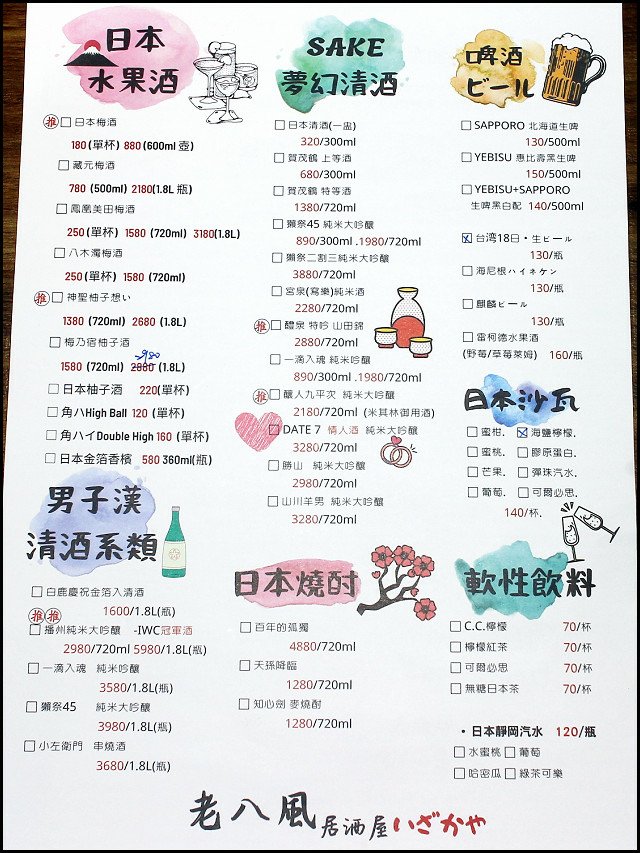 日本
水果酒
推 日本梅酒
180(單杯) 880(600ml 壺)
藏元梅酒
780 (500ml) 2180(1.8L 瓶)
鳳凰美田梅酒
250(單杯) 1580 (720ml) 3180(1.8L)
八木濁梅酒
250(單杯) 1580 (720ml)
推 神聖柚子想い
1380 (720ml) 2680 (1.8L)
梅乃宿柚子酒
2980
1580 (720ml) 2880 (1.8L)
日本柚子酒 220(單杯)
角ハHigh Ball 120 (單杯)
角ハイDouble High 160 (單杯)
日本金箔香檳 580 360ml(瓶)
男子漢
清酒系類
白鹿慶祝金箔入清酒
1600/1.8L(瓶)
推 推
播州純米大吟釀 -IWC冠軍酒
2980/720ml 5980/1.8L(瓶)
一滴入魂 純米吟釀
3580/1.8L(瓶)
獺祭45 純米大吟釀
3980/1.8L(瓶)
小左衛門 串燒酒
3680/1.8L(瓶)
SAKE
夢幻清酒
日本清酒(一盅)
320/300ml
賀茂鶴 上等酒
680/300ml
賀茂鶴 特等酒
1380/720ml
獺祭45 純米大吟釀
890/300ml .1980/720ml
獺祭二割三純米大吟釀
3880/720ml
宮泉(寫樂)純米酒
2280/720ml
推 醴泉 特吟 山田錦
2880/720ml
一滴入魂 純米吟釀
890/300ml .1980/720ml
推 釀人九平次 純米大吟釀
2180/720ml (米其林御用酒)
DATE 7 情人酒 純米大吟釀
3280/720ml
勝山 純米大吟釀
2980/720ml
山川羊男 純米大吟釀
3280/720ml
日本燒酎
百年的孤獨
4880/720ml
天孫降臨
1280/720ml
知心劍 麥燒酎
1280/720ml
啤酒
ビール
SAPPORO 北海道生啤
130/500ml
YEBISU 惠比壽黑生啤
150/500ml
YEBISU+SAPPORO
生啤黑白配 140/500ml
台湾18日・生ビール
130/瓶
海尼根ハイネケン
130/瓶
麒麟ビール
130/瓶
雷柯德水果酒
(野莓/草莓萊姆) 160/瓶
日本沙瓦
蜜柑. 海鹽檸檬.
蜜桃. 膠原蛋白.
芒果. 彈珠汽水.
葡萄. 可爾必思.
140/杯.
軟性飲料
C.C.檸檬 70/杯
檸檬紅茶 70/杯
可爾必思 70/杯
無糖日本茶 70/杯
・日本靜岡汽水 120/瓶
水蜜桃 葡萄
哈密瓜 綠茶可樂
老八風 居酒屋 いざかや